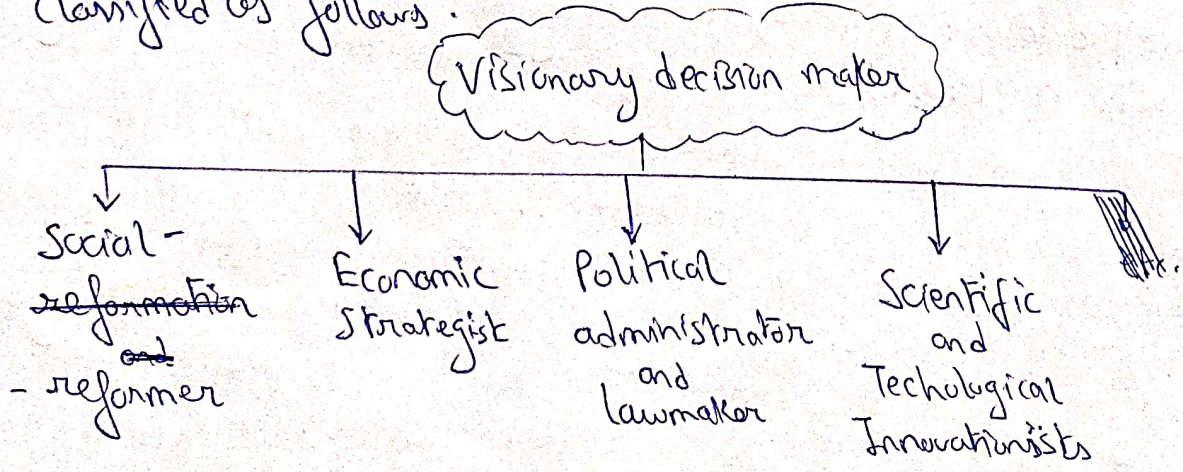 Classified as follows.
Visionary decision maker
Social-
reformation
and
- reformer
Economic
Strategist
Political
administrator
and
lawmaker
Scientific
and
Techological
Innovationists